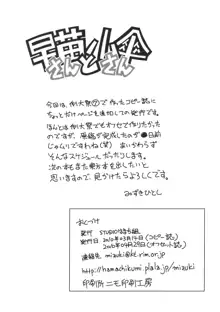 早苗さんと小傘さん
今回は、例大祭⑦で作ったコピー誌に
ちょっとだけページを追加しての発行です。
ほんとは例大祭でもオフセで作りたかった
のですが、原稿が完成したのが 日前
じゃムリですわね(笑) あいかわらず
そんなスケジュールだったりします。
次の本もまた東方本を出したいと
思いますので、見かけたらよろしくです。
みずきひとし
おくづけ
発行 STUDIOはま地組
発行日 2010年03月14日(コピー誌)
2010年04月29日(オフセット誌)
連絡先
http://hamachikumi.plala.jp/mizuki
印刷所 ニモ印刷工房